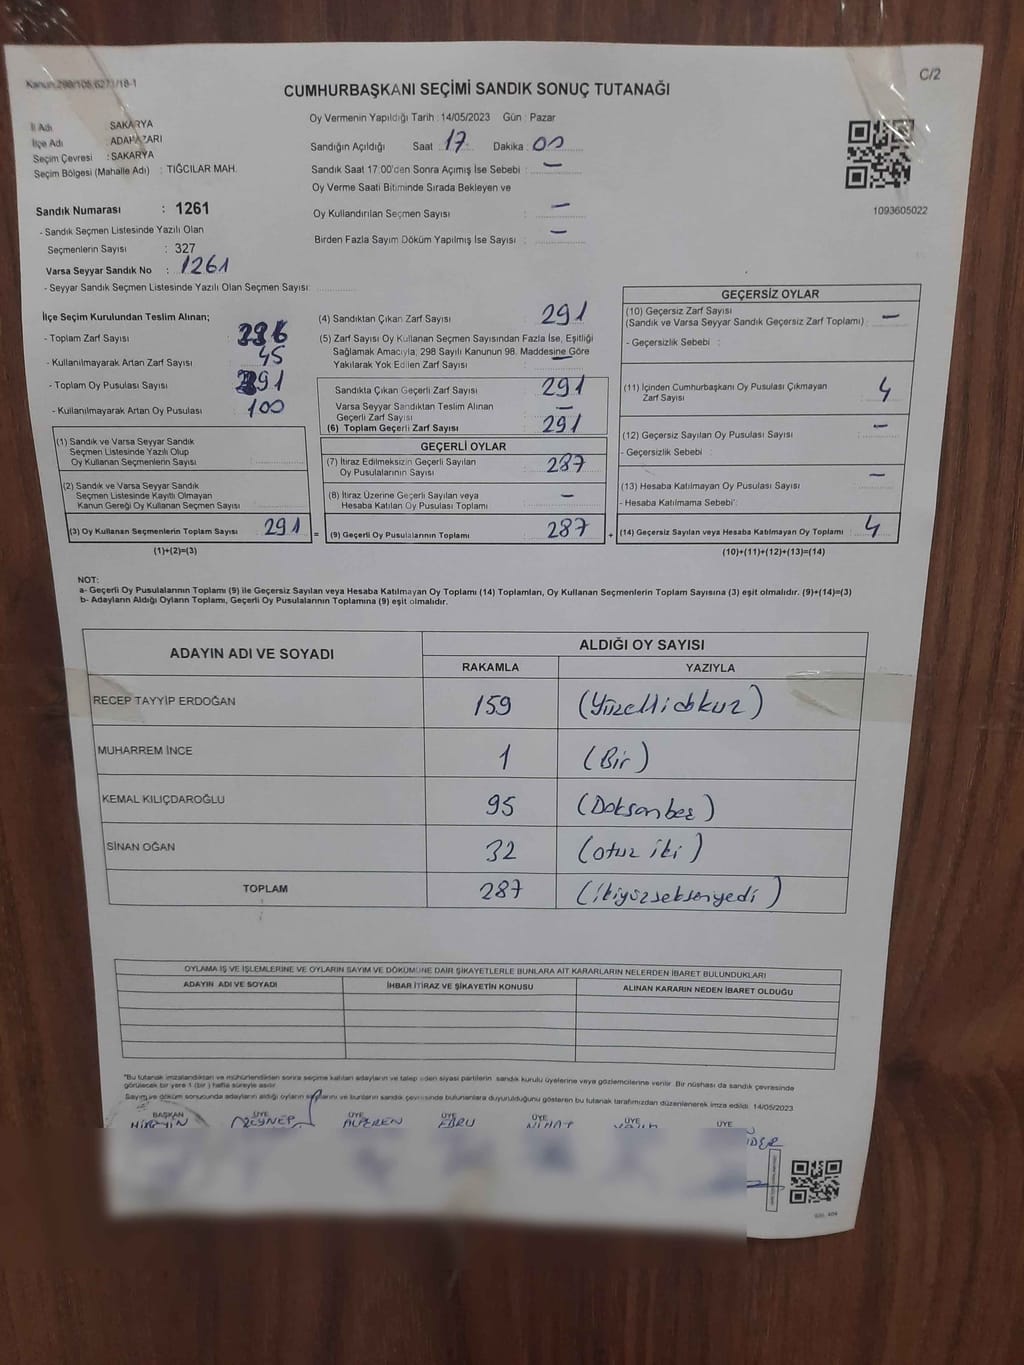 Kanun:298/105,6271/18-1
C/2
CUMHURBAŞKANI SEÇİMİ SANDIK SONUÇ TUTANAĞI
İl Adı : SAKARYA
İlçe Adı : ADAPAZARI
Seçim Çevresi : SAKARYA
Seçim Bölgesi (Mahalle Adı) : TIĞCILAR MAH.
Oy Vermenin Yapıldığı Tarih : 14/05/2023 Gün : Pazar
Sandığın Açıldığı Saat : 17 Dakika : 00
Sandık Saat 17:00'den Sonra Açımış İse Sebebi : —
Oy Verme Saati Bitiminde Sırada Bekleyen ve
Oy Kullandırılan Seçmen Sayısı : —
Birden Fazla Sayım Döküm Yapılmış İse Sayısı : —
1093605022
Sandık Numarası : 1261
- Sandık Seçmen Listesinde Yazılı Olan
Seçmenlerin Sayısı : 327
Varsa Seyyar Sandık No : 1261
- Seyyar Sandık Seçmen Listesinde Yazılı Olan Seçmen Sayısı:
İlçe Seçim Kurulundan Teslim Alınan;
- Toplam Zarf Sayısı :
- Kullanılmayarak Artan Zarf Sayısı : 45
- Toplam Oy Pusulası Sayısı : 391
- Kullanılmayarak Artan Oy Pusulası : 100
(1) Sandık ve Varsa Seyyar Sandık
Seçmen Listesinde Yazılı Olup
Oy Kullanan Seçmenlerin Sayısı :
(2) Sandık ve Varsa Seyyar Sandık
Seçmen Listesinde Kayıtlı Olmayan
Kanun Gereği Oy Kullanan Seçmen Sayısı :
(3) Oy Kullanan Seçmenlerin Toplam Sayısı : 291
(1)+(2)=(3)
(4) Sandıktan Çıkan Zarf Sayısı : 291
(5) Zarf Sayısı Oy Kullanan Seçmen Sayısından Fazla İse, Eşitliği
Sağlamak Amacıyla; 298 Sayılı Kanunun 98. Maddesine Göre
Yakılarak Yok Edilen Zarf Sayısı : —
Sandıkta Çıkan Geçerli Zarf Sayısı : 291
Varsa Seyyar Sandıktan Teslim Alınan
Geçerli Zarf Sayısı : —
(6) Toplam Geçerli Zarf Sayısı : 291
GEÇERLİ OYLAR
(7) İtiraz Edilmeksizin Geçerli Sayılan
Oy Pusulalarının Sayısı : 287
(8) İtiraz Üzerine Geçerli Sayılan veya
Hesaba Katılan Oy Pusulası Toplamı : —
= (9) Geçerli Oy Pusulalarının Toplamı : 287
GEÇERSİZ OYLAR
(10) Geçersiz Zarf Sayısı
(Sandık ve Varsa Seyyar Sandık Geçersiz Zarf Toplamı) : —
- Geçersizlik Sebebi :
(11) İçinden Cumhurbaşkanı Oy Pusulası Çıkmayan
Zarf Sayısı : 4
(12) Geçersiz Sayılan Oy Pusulası Sayısı : —
- Geçersizlik Sebebi :
(13) Hesaba Katılmayan Oy Pusulası Sayısı : —
- Hesaba Katılmama Sebebi :
+ (14) Geçersiz Sayılan veya Hesaba Katılmayan Oy Toplamı : 4
(10)+(11)+(12)+(13)=(14)
NOT:
a- Geçerli Oy Pusulalarının Toplamı (9) ile Geçersiz Sayılan veya Hesaba Katılmayan Oy Toplamı (14) Toplamları, Oy Kullanan Seçmenlerin Toplam Sayısına (3) eşit olmalıdır. (9)+(14)=(3)
b- Adayların Aldığı Oyların Toplamı, Geçerli Oy Pusulalarının Toplamına (9) eşit olmalıdır.
ADAYIN ADI VE SOYADI
ALDIĞI OY SAYISI
RAKAMLA YAZIYLA
RECEP TAYYİP ERDOĞAN 159 (Yüzellidokuz)
MUHARREM İNCE 1 (Bir)
KEMAL KILIÇDAROĞLU 95 (Doksanbeş)
SİNAN OĞAN 32 (otuz iki)
TOPLAM 287 (ikiyüzseksenyedi)
OYLAMA İŞ VE İŞLEMLERİNE VE OYLARIN SAYIM VE DÖKÜMÜNE DAİR ŞİKAYETLERLE BUNLARA AİT KARARLARIN NELERDEN İBARET BULUNDUKLARI
ADAYIN ADI VE SOYADI İHBAR İTİRAZ VE ŞİKAYETİN KONUSU ALINAN KARARIN NEDEN İBARET OLDUĞU
*Bu tutanak imzalandıktan ve mühürlendikten sonra seçime katılan adayların ve talep eden siyasi partilerin sandık kurulu üyelerine veya gözlemcilerine verilir. Bir nüshası da sandık çevresinde
görülecek bir yere 1 (bir) hafta süreyle asılır.
Sayım ve döküm sonucunda adayların aldığı oyların sayılarını ve bunların sandık çevresinde bulunanlara duyurulduğunu gösteren bu tutanak tarafımızdan düzenlenerek imza edildi. 14/05/2023
BAŞKAN ÜYE ÜYE ÜYE ÜYE ÜYE ÜYE
ZEYNEP ALPEREN EBRU NİHAT